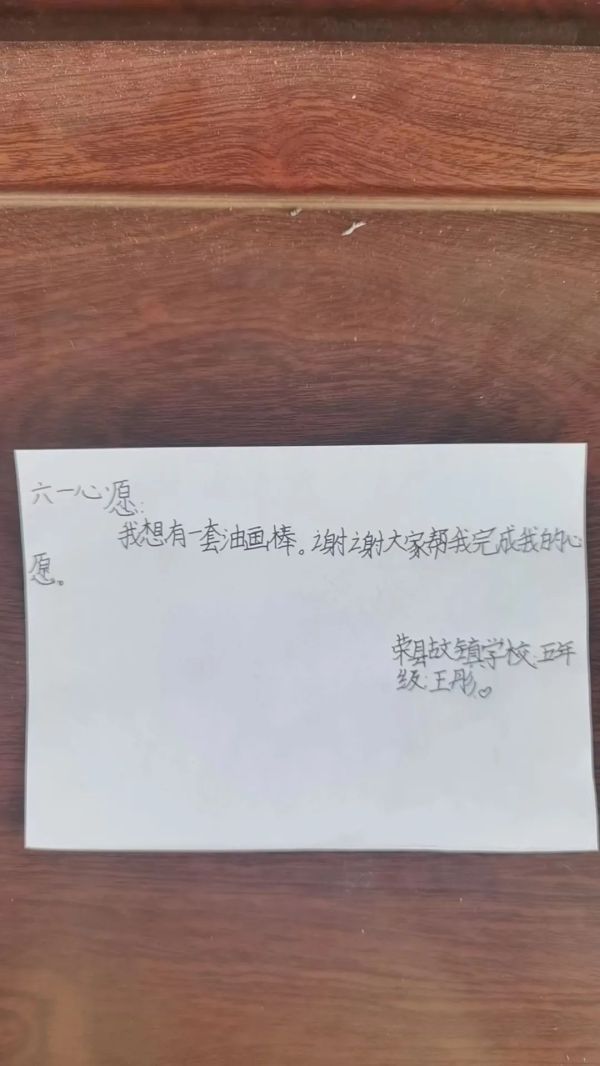 六一心愿:
我想有一套油画棒。谢谢大家帮我完成我的心
愿。
荣县故文镇学校:五年
级:王彤♡